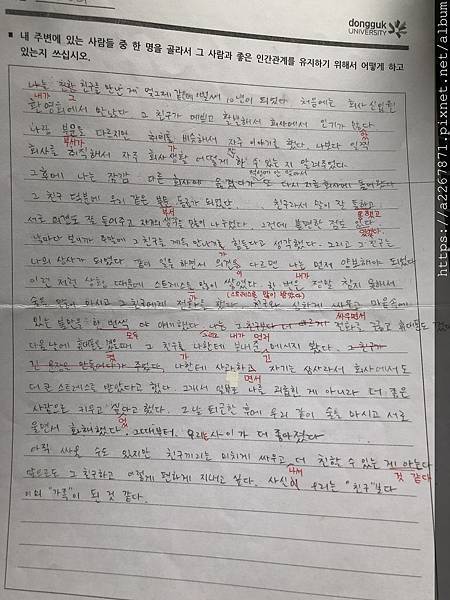 dongguk
UNIVERSITY
■ 내 주변에 있는 사람들 중 한 명을 골라서 그 사람과 좋은 인간관계를 유지하기 위해서 어떻게 하고
있는지 쓰십시오.
나는 친한 친구를 만난 게 엊그제 같은데 벌써 10년이 되었다. 처음에는 회사 신입원
내가 그
환영회에서 만났다. 그 친구가 예쁘고 활발해서 회사에서 인기가 많다.
나랑 부문을 다르지만 취미를 비슷해서 자주 이야기를 했다. 나보다 일찍
부서가 가
회사를 취직해서 자주 회사생활 어떻게 할 수 있는 지 알려주었다.
그후에 나는 잠깐 다른 회사에 옮겼다가 또 다시 회사에 돌아왔다.
그 친구 덕분에 우리 같은 부문 동료가 되었다. 친구라서 말이 잘 통하고
부서 통했고
서로 의견도 잘 들어주고 나누었다. 그런데 불편한 점도 있다
있었다.
날마다 보니까 주말에 그 친구를 계속 만나기를 힘들다고 생각했다. 그리고 그 친구는
가
나의 상사가 되었다. 같이 일을 하면서 의견을 다르면 나는 먼저 양보해야 되었다.
이 내가
이런 저런 상황 때문에 스트레스를 많이 쌓였다. 한 번은 정말 참지 못해서
(스트레스를 많이 받았다)
술을 많이 마시고 그 친구에게 전화를 했다. 친구와 심하게 싸우고 마음속에
싸우면서
있는 불만을 한 번씩 다 얘기했다. 나는 그 친구보다 더 전화를 끊고 휴대폰도 껐
모두 내가 먼저
다음날에 휴대폰을 켰을때 그 친구를 나한테 보내준 메시지 봤다. 그 친구가
켰 가 긴
긴 주었다. 나한테 사과하고 자기는 상사라서 회사에서도
면서
더 큰 스트레스를 받았다고 했다. 그래서 일부러 나를 괴롭힌 게 아니라 더 좋은
사람으로 키우고 싶다고 했다. 그 날 퇴근한 후에 우리 같이 술을 마시고 서로
었
울면서 화해했다. 그때부터, 우리는 사이가 더 좋아졌다
아직 싸울 수도 있지만 친구끼리는 미치게 싸우고 더 친할 수 있는 게 아는다
나서 것 같다
앞으로도 그 친구하고 이렇게 편하게 지내고 싶다. 사실 우리는 "친구"보다
이미 "가족"이 된 것 같다.
https://a2267871.pixnet.net/album